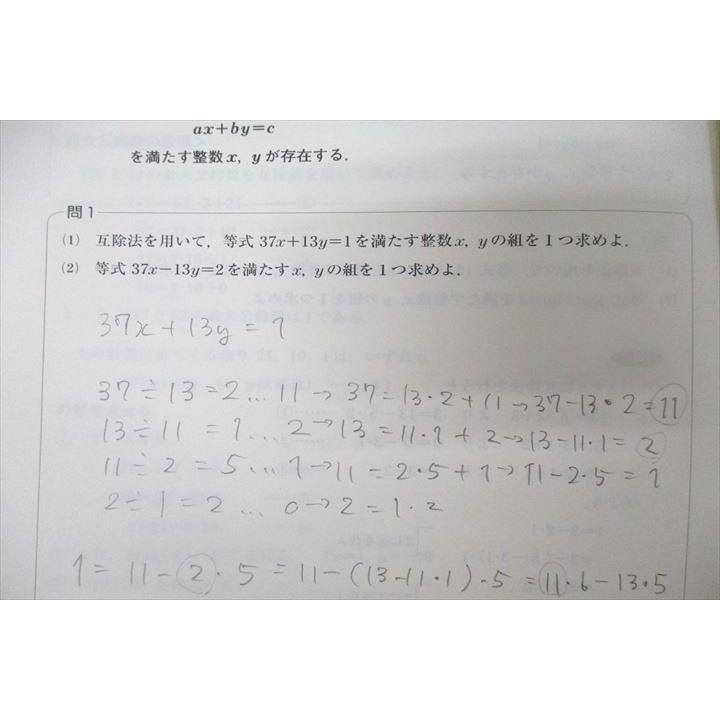 ax+by=c
を満たす整数 x, y が存在する.
問1
(1) 互除法を用いて, 等式 37x+13y=1 を満たす整数 x, y の組を1つ求めよ.
(2) 等式 37x−13y=2 を満たす x, y の組を1つ求めよ.
37x+13y=1
37÷13=2…11→37=13・2+11→37−13・2=11
13÷11=1…2→13=11・1+2→13−11・1=2
11÷2=5…1→11=2・5+1→11−2・5=1
2÷1=2…0→2=1・2
1=11−2・5=11−(13−11・1)・5=11・6−13・5